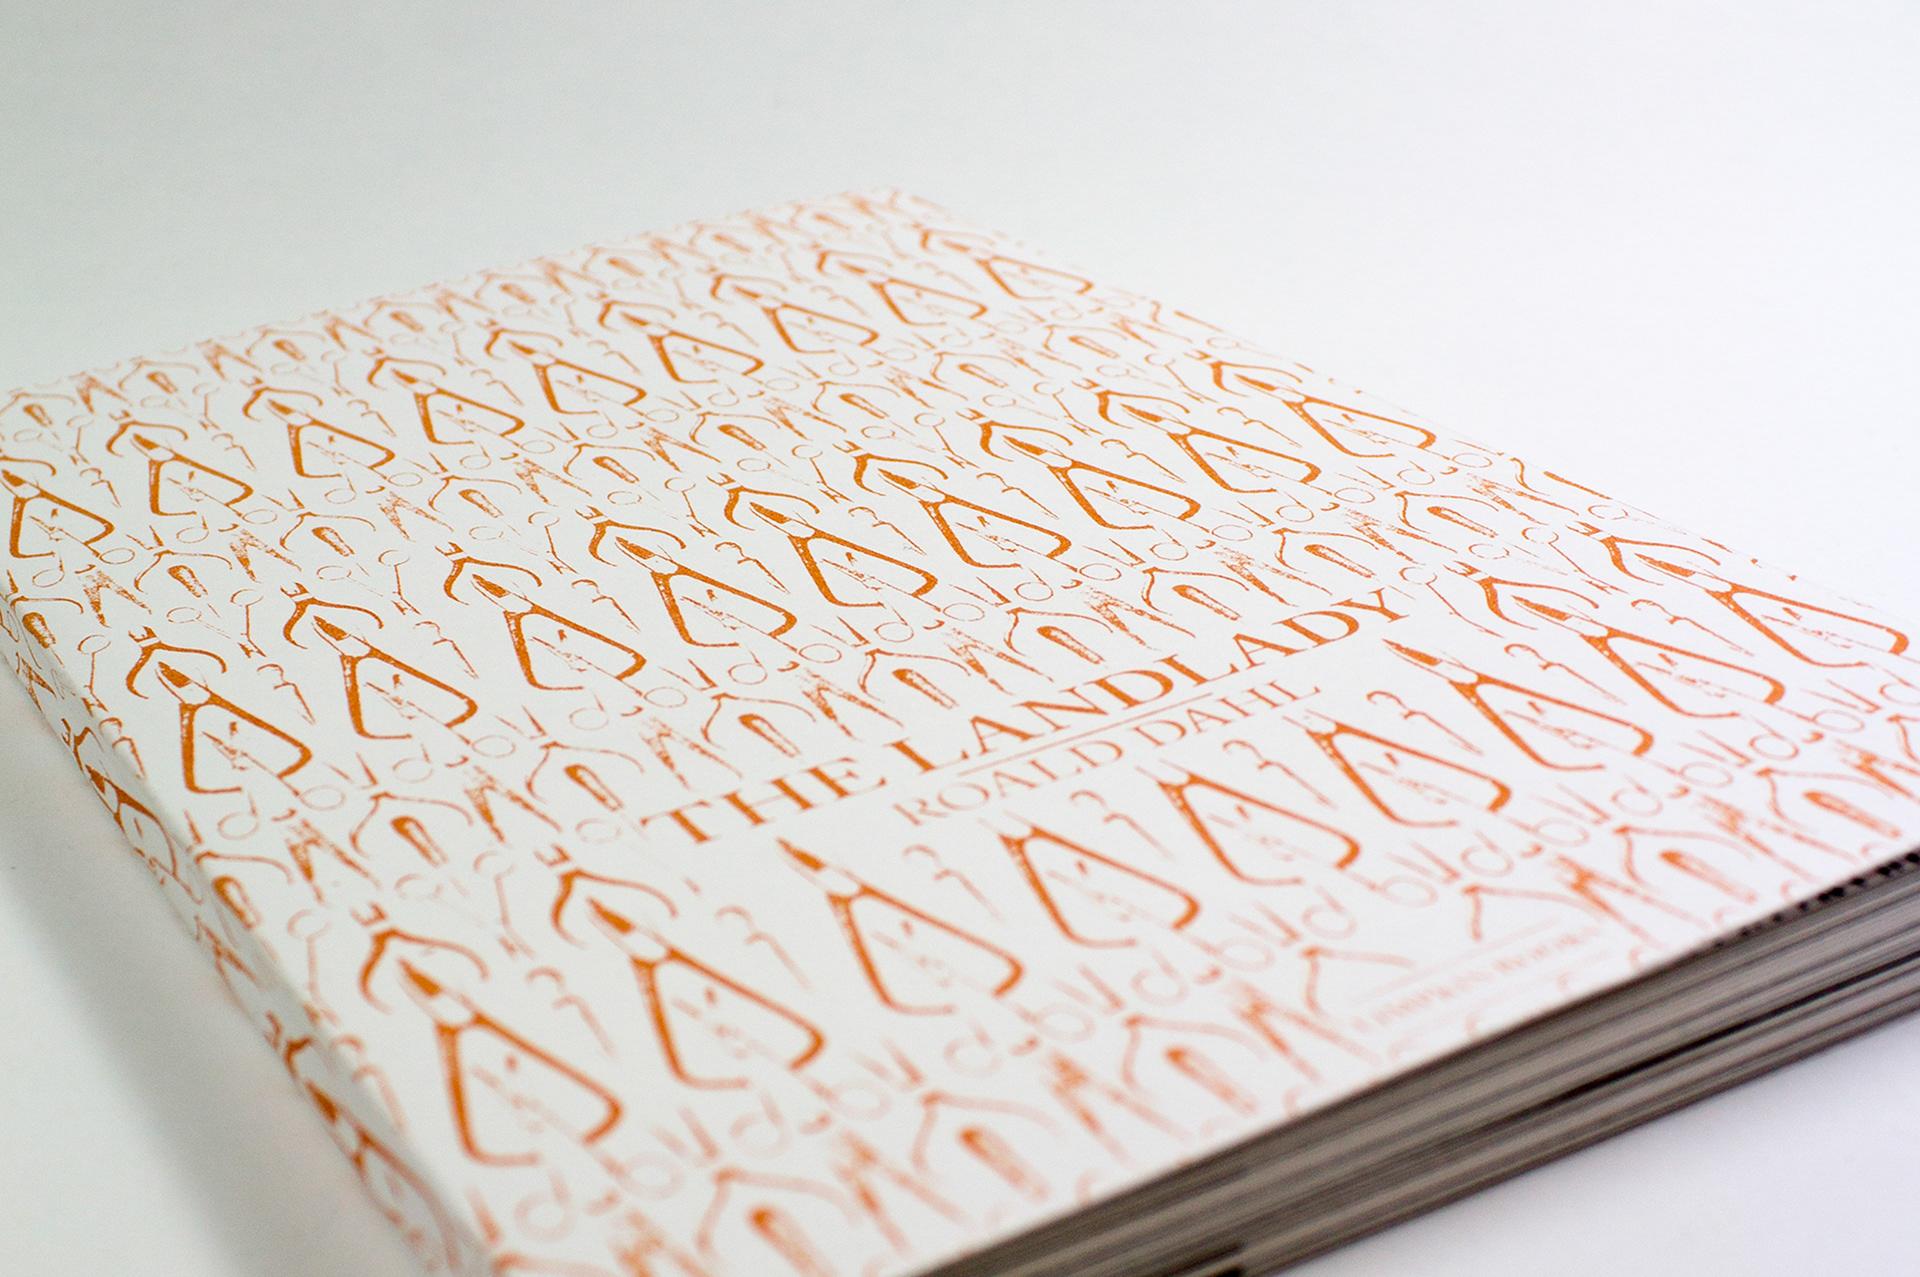 THE LANDLADY
ROALD DAHL